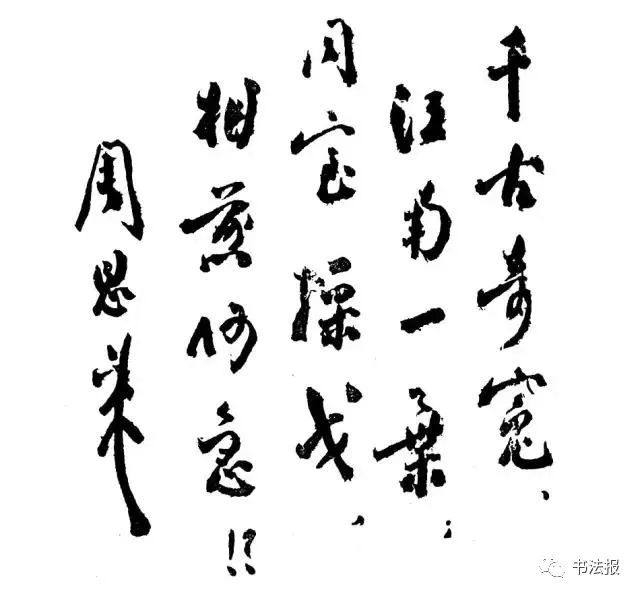 千古奇冤、
江南一葉；
同室操戈、
相煎何急！？
周恩來
书法报